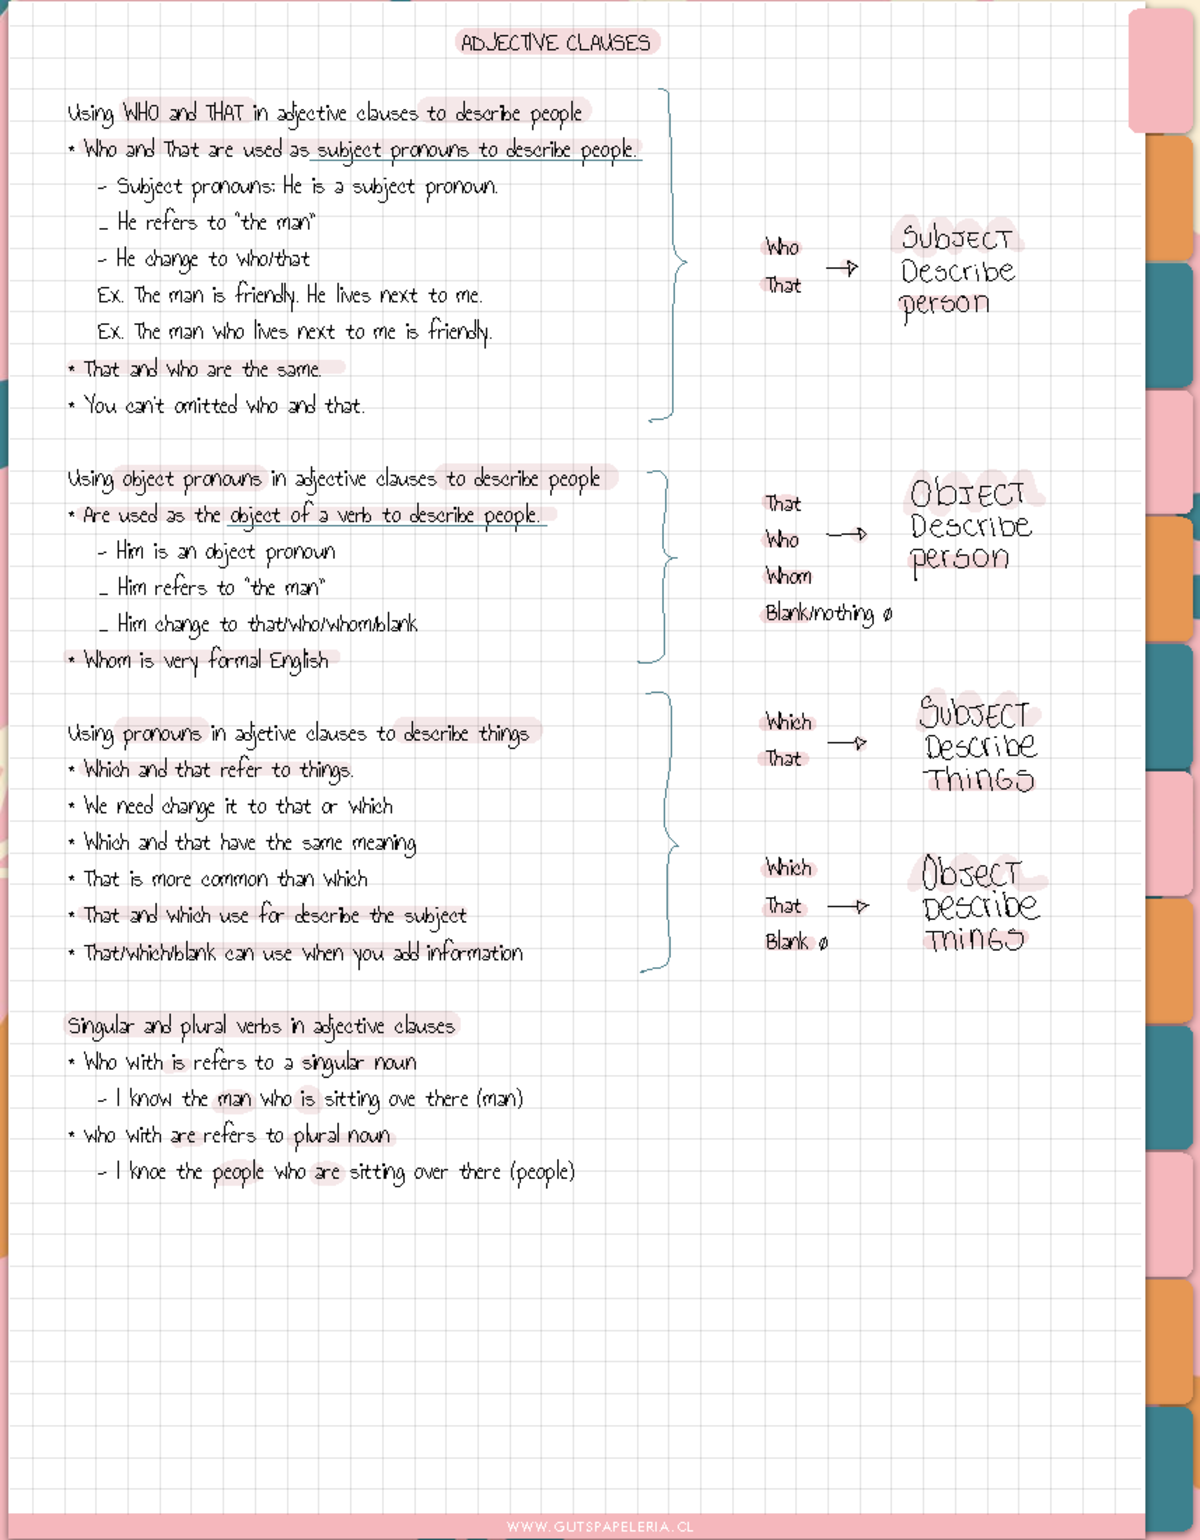 ADJECTIVE CLAUSES
Using WHO and THAT in adjective clauses to describe people
* Who and That are used as subject pronouns to describe people.
- Subject pronouns: He is a subject pronoun.
_ He refers to "the man"
- He change to who/that
Ex. The man is friendly. He lives next to me.
Ex. The man who lives next to me is friendly.
* That and who are the same.
* You can't omitted who and that.
Who
That
SUBJECT
Describe
person
Using object pronouns in adjective clauses to describe people
* Are used as the object of a verb to describe people.
- Him is an object pronoun
_ Him refers to "the man"
_ Him change to that/who/whom/blank
* Whom is very formal English
That
Who
Whom
Blank/nothing ø
OBJECT
Describe
person
Using pronouns in adjetive clauses to describe things
* Which and that refer to things.
* We need change it to that or which
* Which and that have the same meaning
* That is more common than which
* That and which use for describe the subject
* That/which/blank can use when you add information
Which
That
SUBJECT
Describe
THINGS
Which
That
Blank ø
Object
Describe
THINGS
Singular and plural verbs in adjective clauses
* Who with is refers to a singular noun
- I know the man who is sitting ove there (man)
* who with are refers to plural noun
- I knoe the people who are sitting over there (people)
WWW.GUTSPAPELERIA.CL